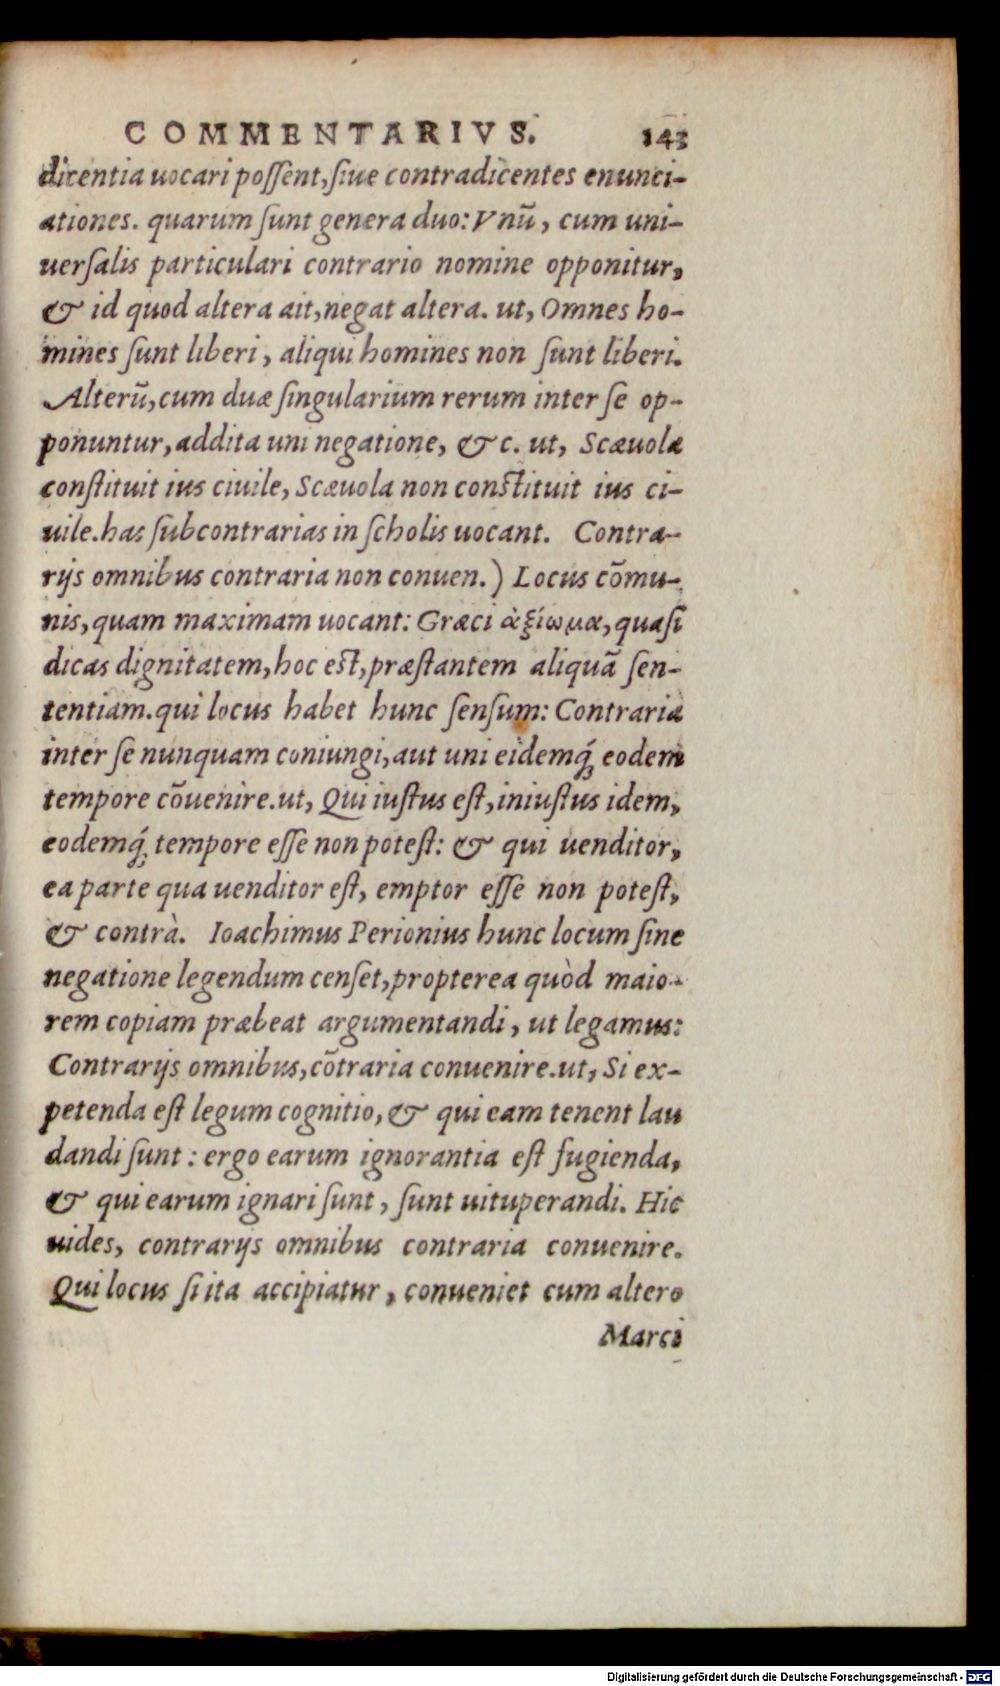 COMMENTARIVS. 143
dicentia uocari possent, siue contradicentes enunci-
ationes. quarum sunt genera duo: Vnū, cum uni-
uersalis particulari contrario nomine opponitur,
& id quod altera ait, negat altera. ut, Omnes ho-
mines sunt liberi, aliqui homines non sunt liberi.
Alterū, cum duæ singularium rerum inter se op-
ponuntur, addita uni negatione, &c. ut, Scæuola
constituit ius ciuile, Scæuola non constituit ius ci-
uile. has subcontrarias in scholis uocant. Contra-
rijs omnibus contraria non conuen.) Locus cōmu-
nis, quam maximam uocant: Græci ἀξίωμα, quasi
dicas dignitatem, hoc est, præstantem aliquā sen-
tentiam. qui locus habet hunc sensum: Contraria
inter se nunquam coniungi, aut uni eidemq́; eodem
tempore cōuenire. ut, Qui iustus est, iniustus idem,
eodemq́; tempore esse non potest: & qui uenditor,
ea parte qua uenditor est, emptor esse non potest,
& contrà. Ioachimus Perionius hunc locum sine
negatione legendum censet, propterea quòd maio-
rem copiam præbeat argumentandi, ut legamus:
Contrarijs omnibus, cōtraria conuenire. ut, Si ex-
petenda est legum cognitio, & qui eam tenent lau
dandi sunt: ergo earum ignorantia est fugienda,
& qui earum ignari sunt, sunt uituperandi. Hic
uides, contrarijs omnibus contraria conuenire.
Qui locus si ita accipiatur, conueniet cum altero
Marci
Digitalisierung gefördert durch die Deutsche Forschungsgemeinschaft - DFG